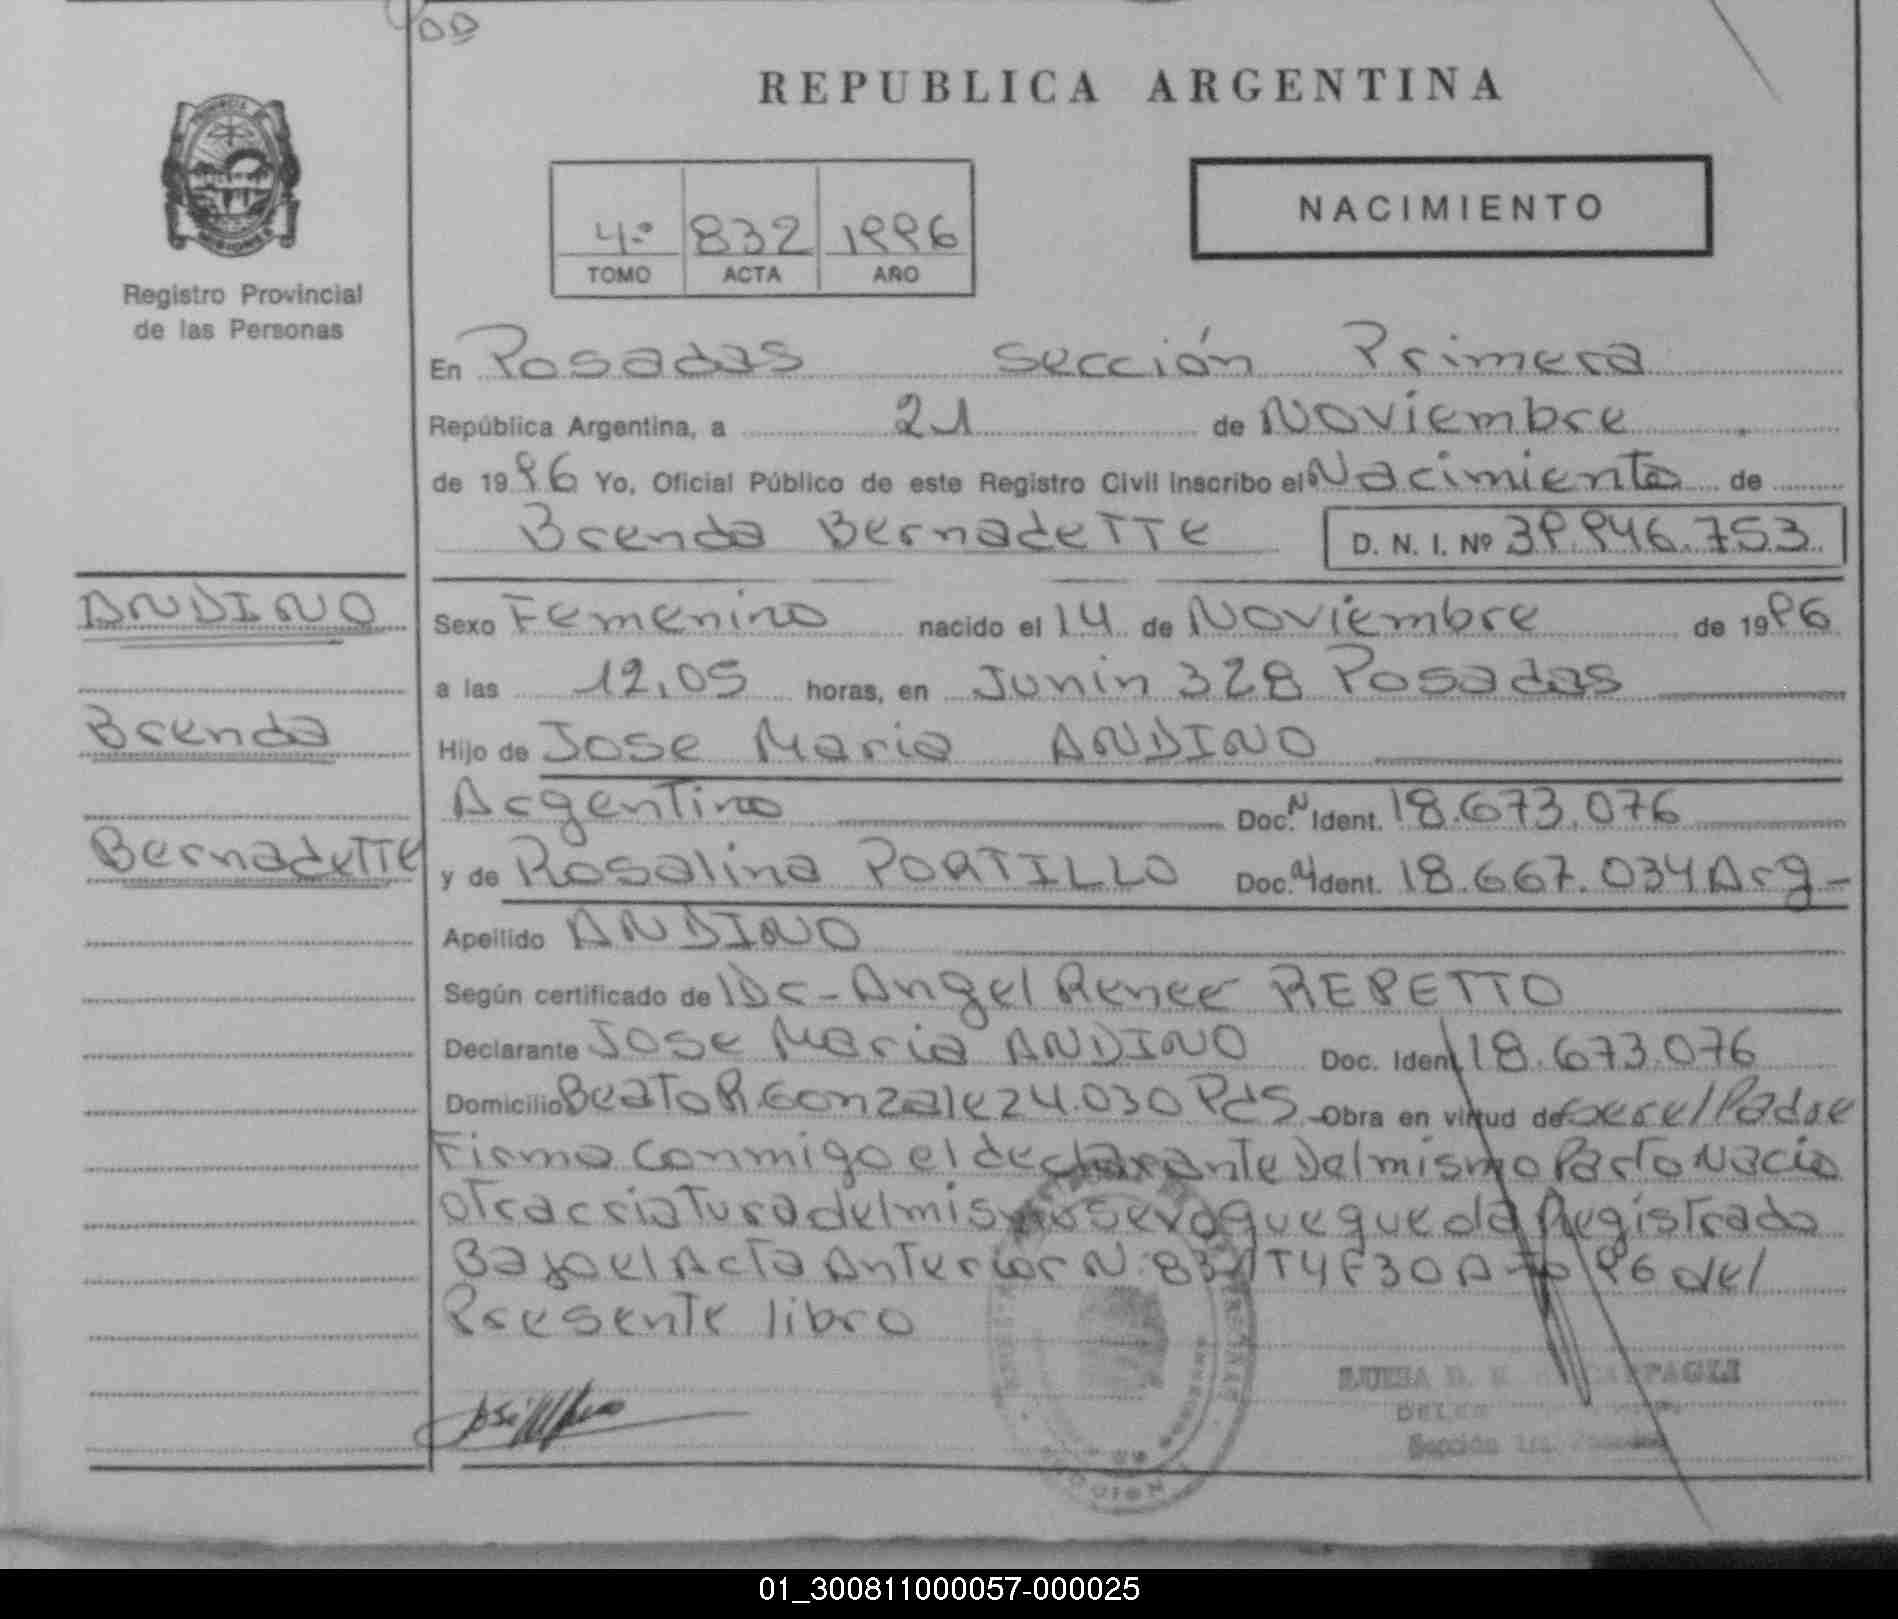 REPUBLICA ARGENTINA
NACIMIENTO
4º 832 1996
TOMO ACTA AÑO
Registro Provincial
de las Personas
En Posadas Sección Primera
República Argentina, a 21 de Noviembre
de 1996 Yo, Oficial Público de este Registro Civil inscribo el Nacimiento de
Brenda BernadeTTe D. N. I. Nº 39.946.753
ANDINO
Brenda
BernadeTTe
Sexo Femenino nacido el 14 de Noviembre de 1996
a las 12,05 horas, en Junin 328 Posadas
Hijo de Jose Maria ANDINO
Argentino Doc. N Ident. 18.673.076
y de Rosalina PORTILLO Doc. N Ident. 18.667.034 Arg-
Apellido ANDINO
Según certificado de Dr-Angel Renee REPETTO
Declarante Jose Maria ANDINO Doc. Ident. 18.673.076
Domicilio Beato R. Gonzalez 4.030 Pds Obra en virtud de ser el Padre
Firma conmigo el declarante Del mismo Parto Nacio
otra criatura del mismo sexo que queda Registrada
Bajo el Acta Anterior N: 831 T4 F30 Año 96 del
Presente libro
Sección 1ra.
01_300811000057-000025